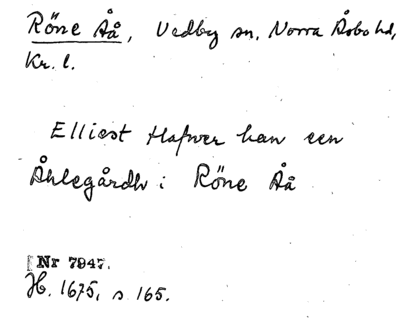 Röne Åå, Vedby sn, Norra Åsbo hd,
Kr. l.
Elliest Hafwer han een
Åhlegårdh i Röne Åå
[Nr 7947.
H. 1675, s. 165.